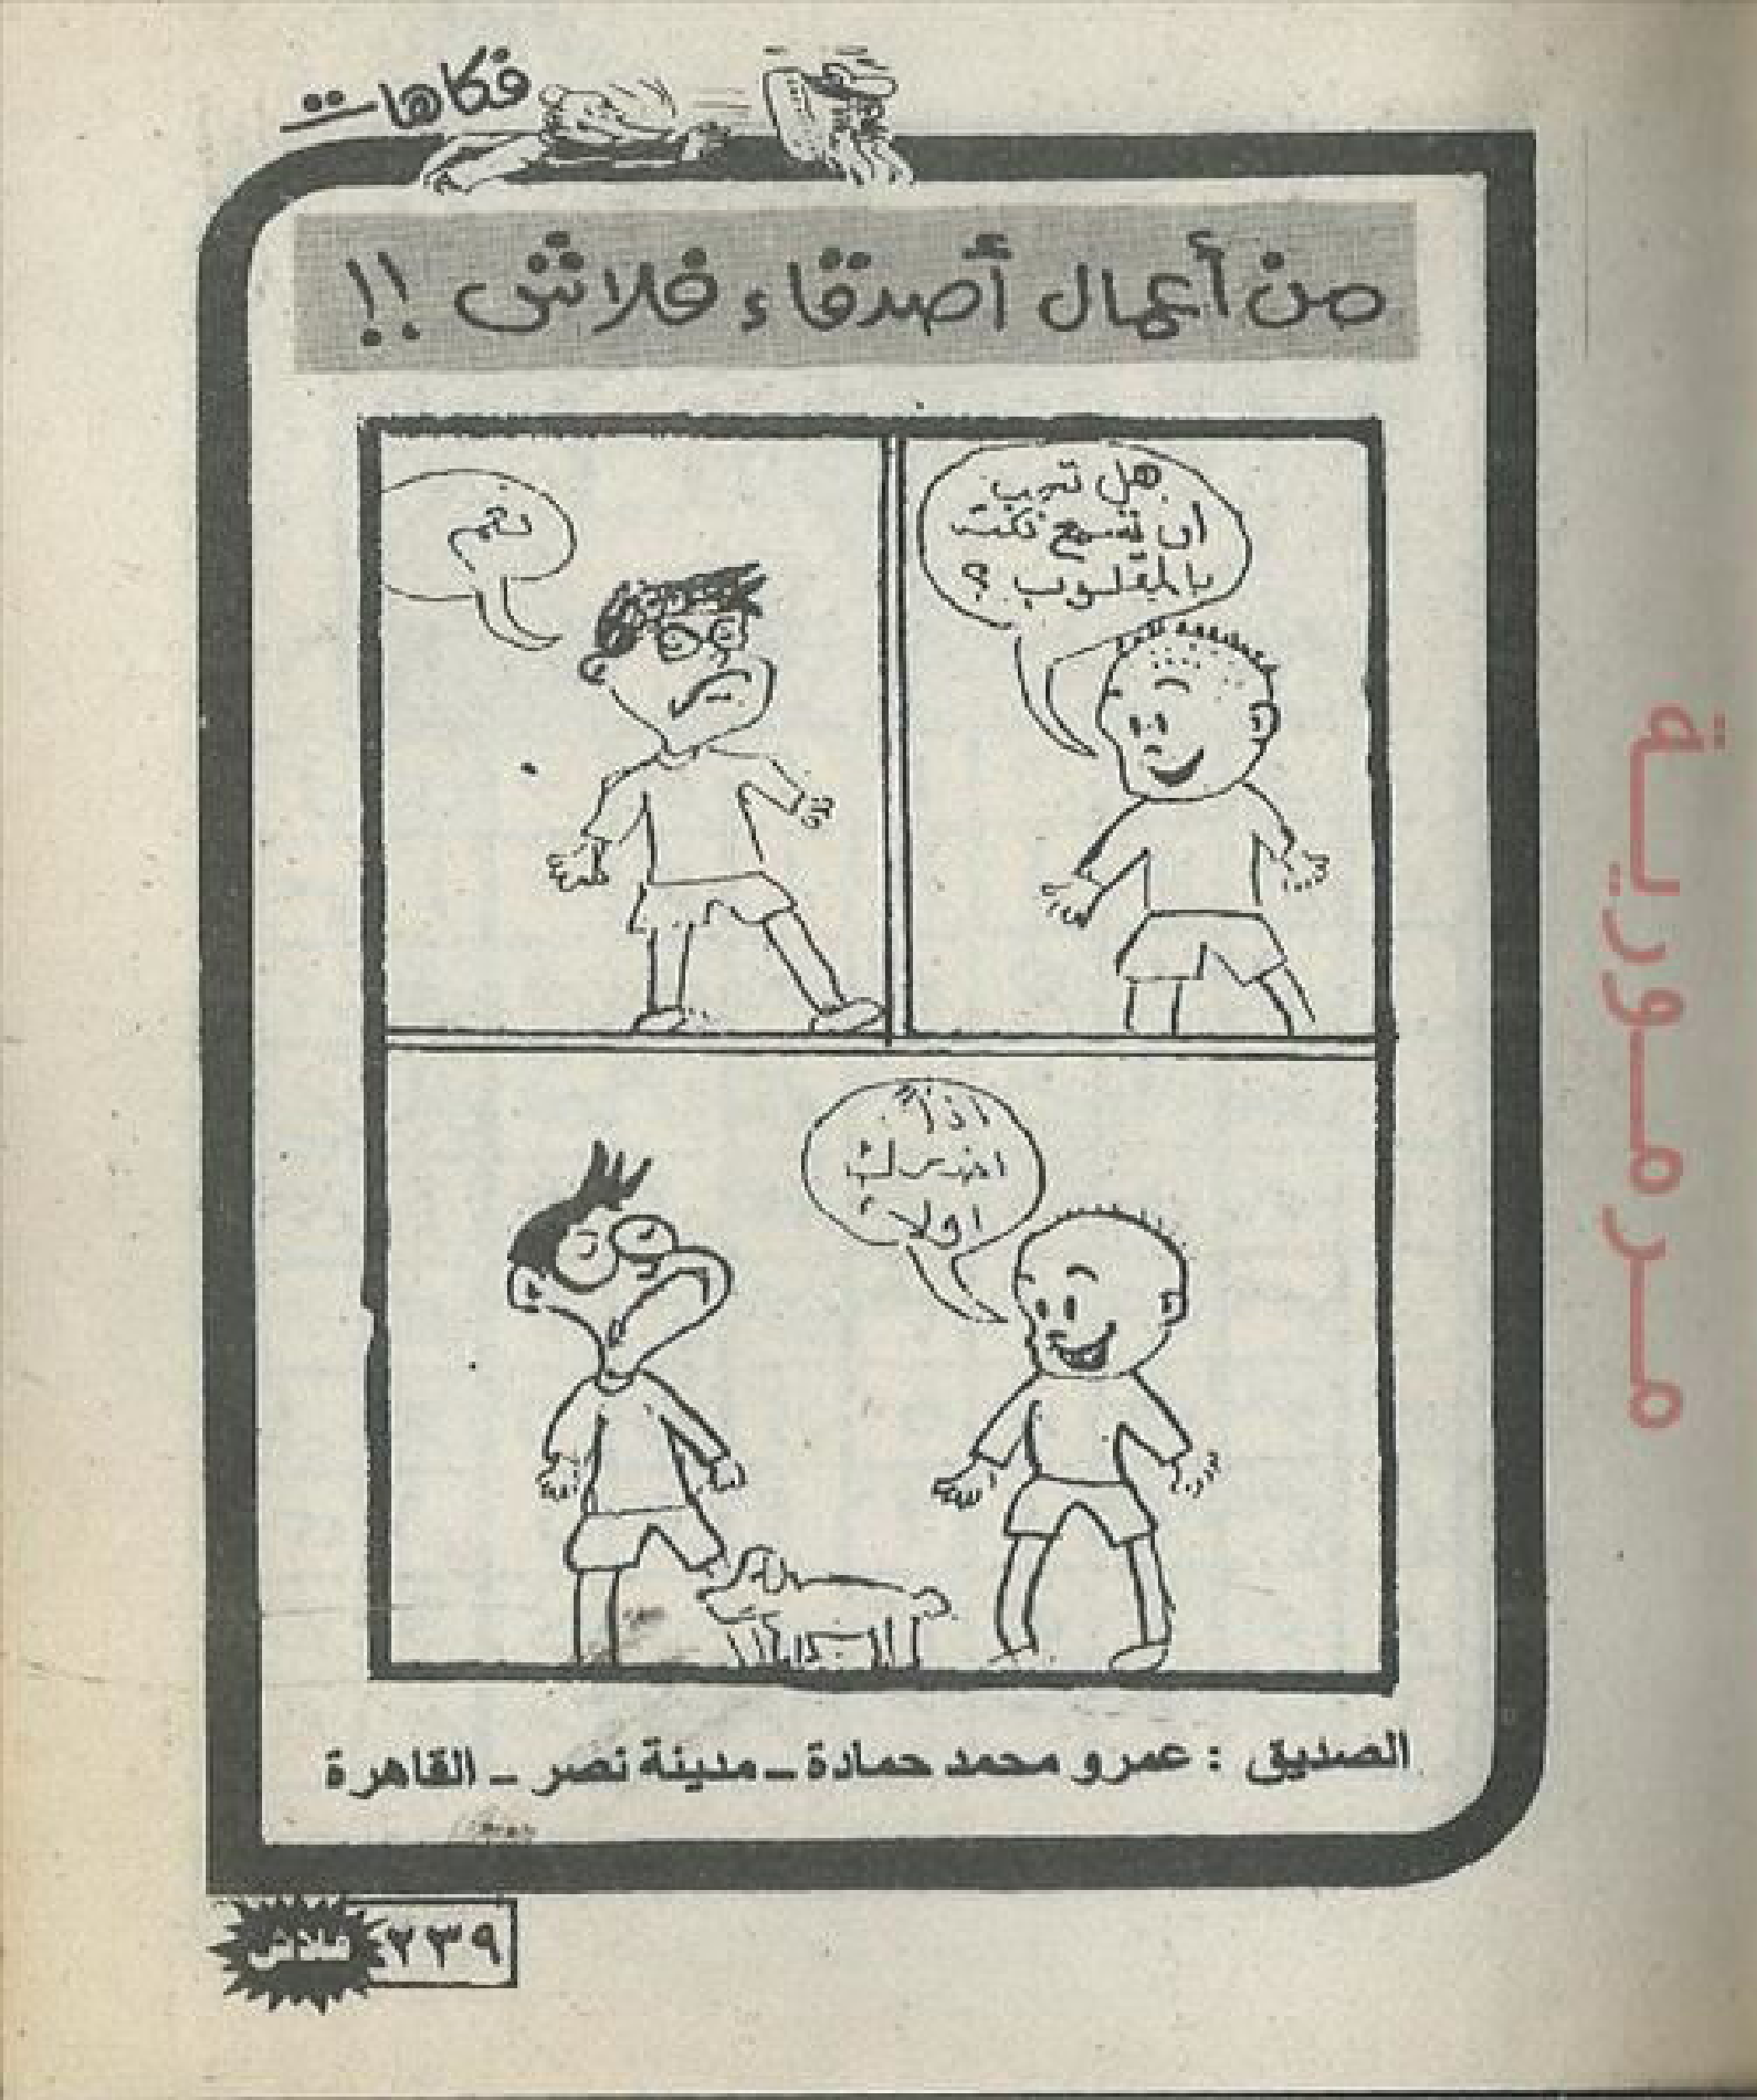 فكاهات
من أعمال أصدقاء فلاش !!
هل تحب
ان تسمع نكت
بالمقلوب ؟
نعم
اذاً
اضحك
اولاً
الصديق : عمرو محمد حمادة - مدينة نصر - القاهرة
٢٣٩
فلاش
مرمورية